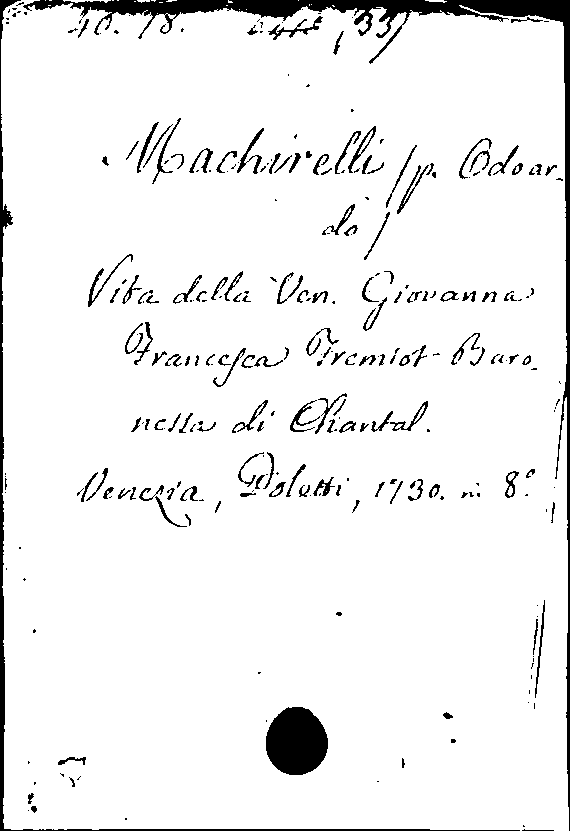 40. 18.
Machirelli (p. Odoar-
do)
Vita della Ven. Giovanna
Francesca Fremiot-Baro-
nessa di Chantal.
Venezia, Poletti, 1730. in 8.°